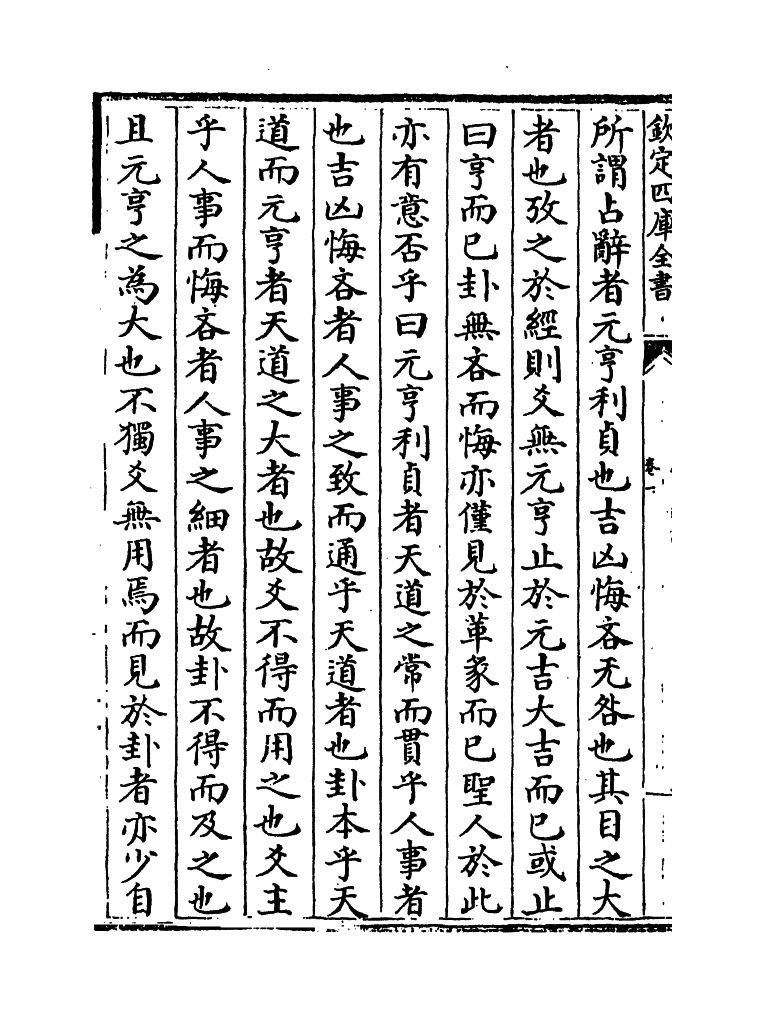 欽定四庫全書
卷一
所謂占辭者元亨利貞也吉凶悔吝无咎也其目之大
者也攷之於經則爻無元亨止於元吉大吉而已或止
曰亨而已卦無吝而悔亦僅見於革彖而已聖人於此
亦有意否乎曰元亨利貞者天道之常而貫乎人事者
也吉凶悔吝者人事之致而通乎天道者也卦本乎天
道而元亨者天道之大者也故爻不得而用之也爻主
乎人事而悔吝者人事之細者也故卦不得而及之也
且元亨之為大也不獨爻無用焉而見於卦者亦少自